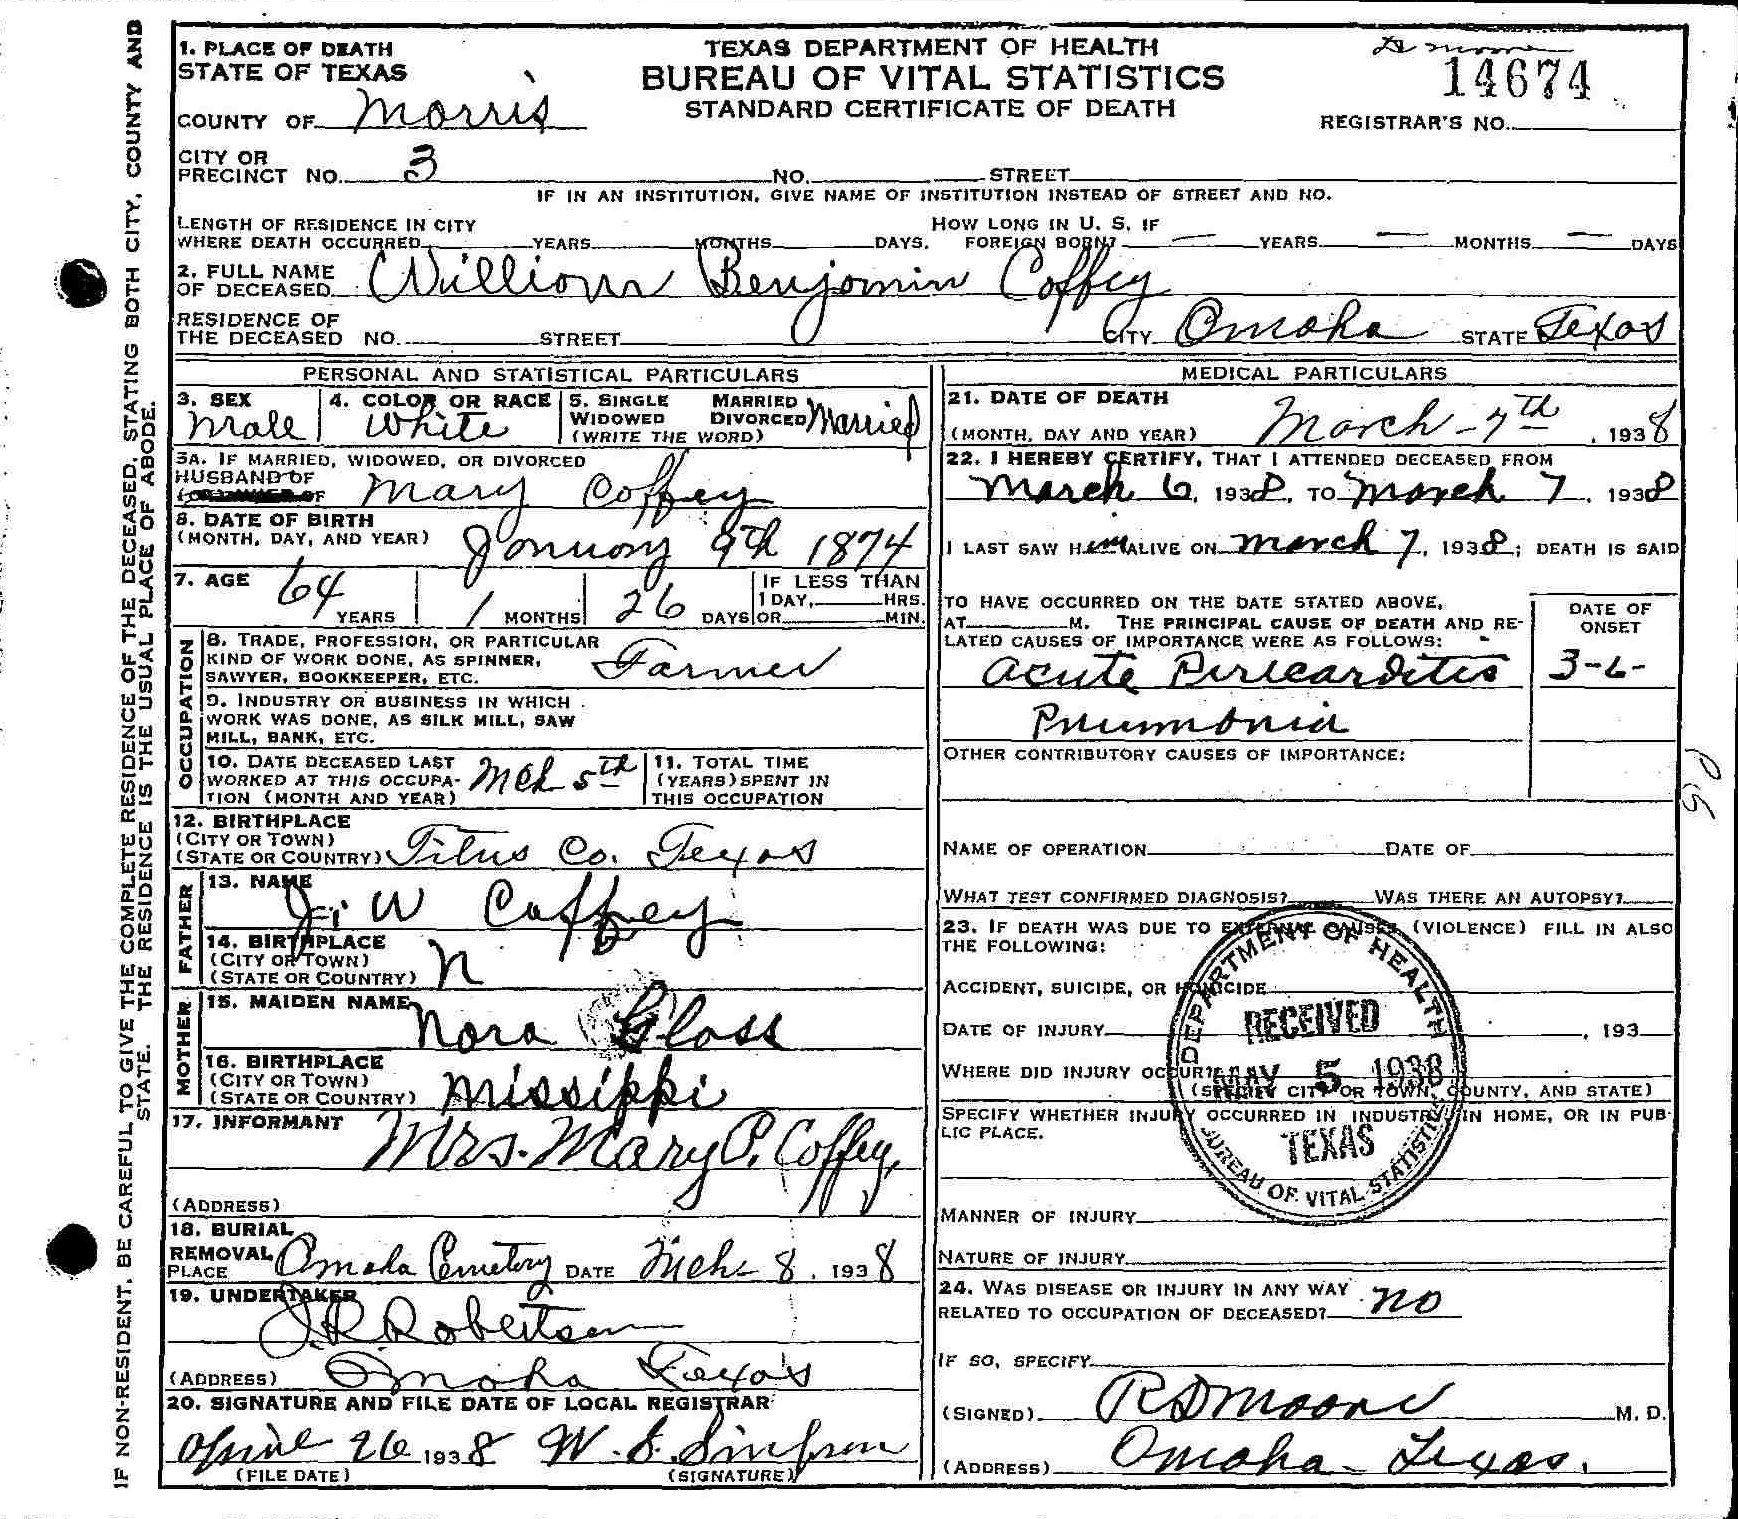 IF NON-RESIDENT. BE CAREFUL TO GIVE THE COMPLETE RESIDENCE OF THE DECEASED, STATING BOTH CITY, COUNTY AND
STATE. THE RESIDENCE IS THE USUAL PLACE OF ABODE.
1. PLACE OF DEATH
STATE OF TEXAS
COUNTY OF Morris
TEXAS DEPARTMENT OF HEALTH
BUREAU OF VITAL STATISTICS
STANDARD CERTIFICATE OF DEATH
14674
REGISTRAR'S NO.
CITY OR
PRECINCT NO. 3 NO. STREET
IF IN AN INSTITUTION, GIVE NAME OF INSTITUTION INSTEAD OF STREET AND NO.
LENGTH OF RESIDENCE IN CITY HOW LONG IN U. S. IF
WHERE DEATH OCCURRED YEARS MONTHS DAYS. FOREIGN BORN? — YEARS — MONTHS — DAYS
2. FULL NAME
OF DECEASED William Benjamin Coffey
RESIDENCE OF
THE DECEASED NO. STREET CITY Omaha STATE Texas
PERSONAL AND STATISTICAL PARTICULARS
3. SEX
Male
4. COLOR OR RACE
White
5. SINGLE MARRIED
WIDOWED DIVORCED Married
(WRITE THE WORD)
5A. IF MARRIED, WIDOWED, OR DIVORCED
HUSBAND OF
OF Mary Coffey
6. DATE OF BIRTH
(MONTH, DAY, AND YEAR) January 9th 1874
7. AGE 64 YEARS 1 MONTHS 26 DAYS
IF LESS THAN
1 DAY, HRS.
OR MIN.
OCCUPATION
8. TRADE, PROFESSION, OR PARTICULAR
KIND OF WORK DONE, AS SPINNER,
SAWYER, BOOKKEEPER, ETC. Farmer
9. INDUSTRY OR BUSINESS IN WHICH
WORK WAS DONE, AS SILK MILL, SAW
MILL, BANK, ETC.
10. DATE DECEASED LAST
WORKED AT THIS OCCUPA-
TION (MONTH AND YEAR) Mch 5th
11. TOTAL TIME
(YEARS) SPENT IN
THIS OCCUPATION
12. BIRTHPLACE
(CITY OR TOWN)
(STATE OR COUNTRY) Titus Co. Texas
FATHER
13. NAME
J. W Coffey
14. BIRTHPLACE
(CITY OR TOWN)
(STATE OR COUNTRY) N
MOTHER
15. MAIDEN NAME
Nora Glass
16. BIRTHPLACE
(CITY OR TOWN)
(STATE OR COUNTRY) Missippi
17. INFORMANT Mrs. Mary P. Coffey,
(ADDRESS)
18. BURIAL
REMOVAL
PLACE Omaha Cemetery DATE Mch- 8, 1938
19. UNDERTAKER
J.R. Robertson
(ADDRESS) Omaha Texas
20. SIGNATURE AND FILE DATE OF LOCAL REGISTRAR
April 26 1938 W. S. Simpson
(FILE DATE) (SIGNATURE)
MEDICAL PARTICULARS
21. DATE OF DEATH
(MONTH, DAY AND YEAR) March - 7th, 1938
22. I HEREBY CERTIFY, THAT I ATTENDED DECEASED FROM
March 6, 1938, TO March 7, 1938
I LAST SAW Him ALIVE ON March 7, 1938; DEATH IS SAID
TO HAVE OCCURRED ON THE DATE STATED ABOVE,
AT M. THE PRINCIPAL CAUSE OF DEATH AND RE-
LATED CAUSES OF IMPORTANCE WERE AS FOLLOWS:
DATE OF
ONSET
Acute Pericarditis 3-6-
Pnumonia
OTHER CONTRIBUTORY CAUSES OF IMPORTANCE:
NAME OF OPERATION DATE OF
WHAT TEST CONFIRMED DIAGNOSIS? WAS THERE AN AUTOPSY?
23. IF DEATH WAS DUE TO EXTERNAL CAUSES (VIOLENCE) FILL IN ALSO
THE FOLLOWING:
ACCIDENT, SUICIDE, OR HOMICIDE
DATE OF INJURY , 193
WHERE DID INJURY OCCUR?
(SPECIFY CITY OR TOWN, COUNTY, AND STATE)
SPECIFY WHETHER INJURY OCCURRED IN INDUSTRY, IN HOME, OR IN PUB-
LIC PLACE.
DEPARTMENT OF HEALTH
RECEIVED
MAY 5 1938
TEXAS
BUREAU OF VITAL STATISTICS
MANNER OF INJURY
NATURE OF INJURY
24. WAS DISEASE OR INJURY IN ANY WAY
RELATED TO OCCUPATION OF DECEASED? no
IF SO, SPECIFY
(SIGNED) R D Moore M. D.
(ADDRESS) Omaha - Texas.